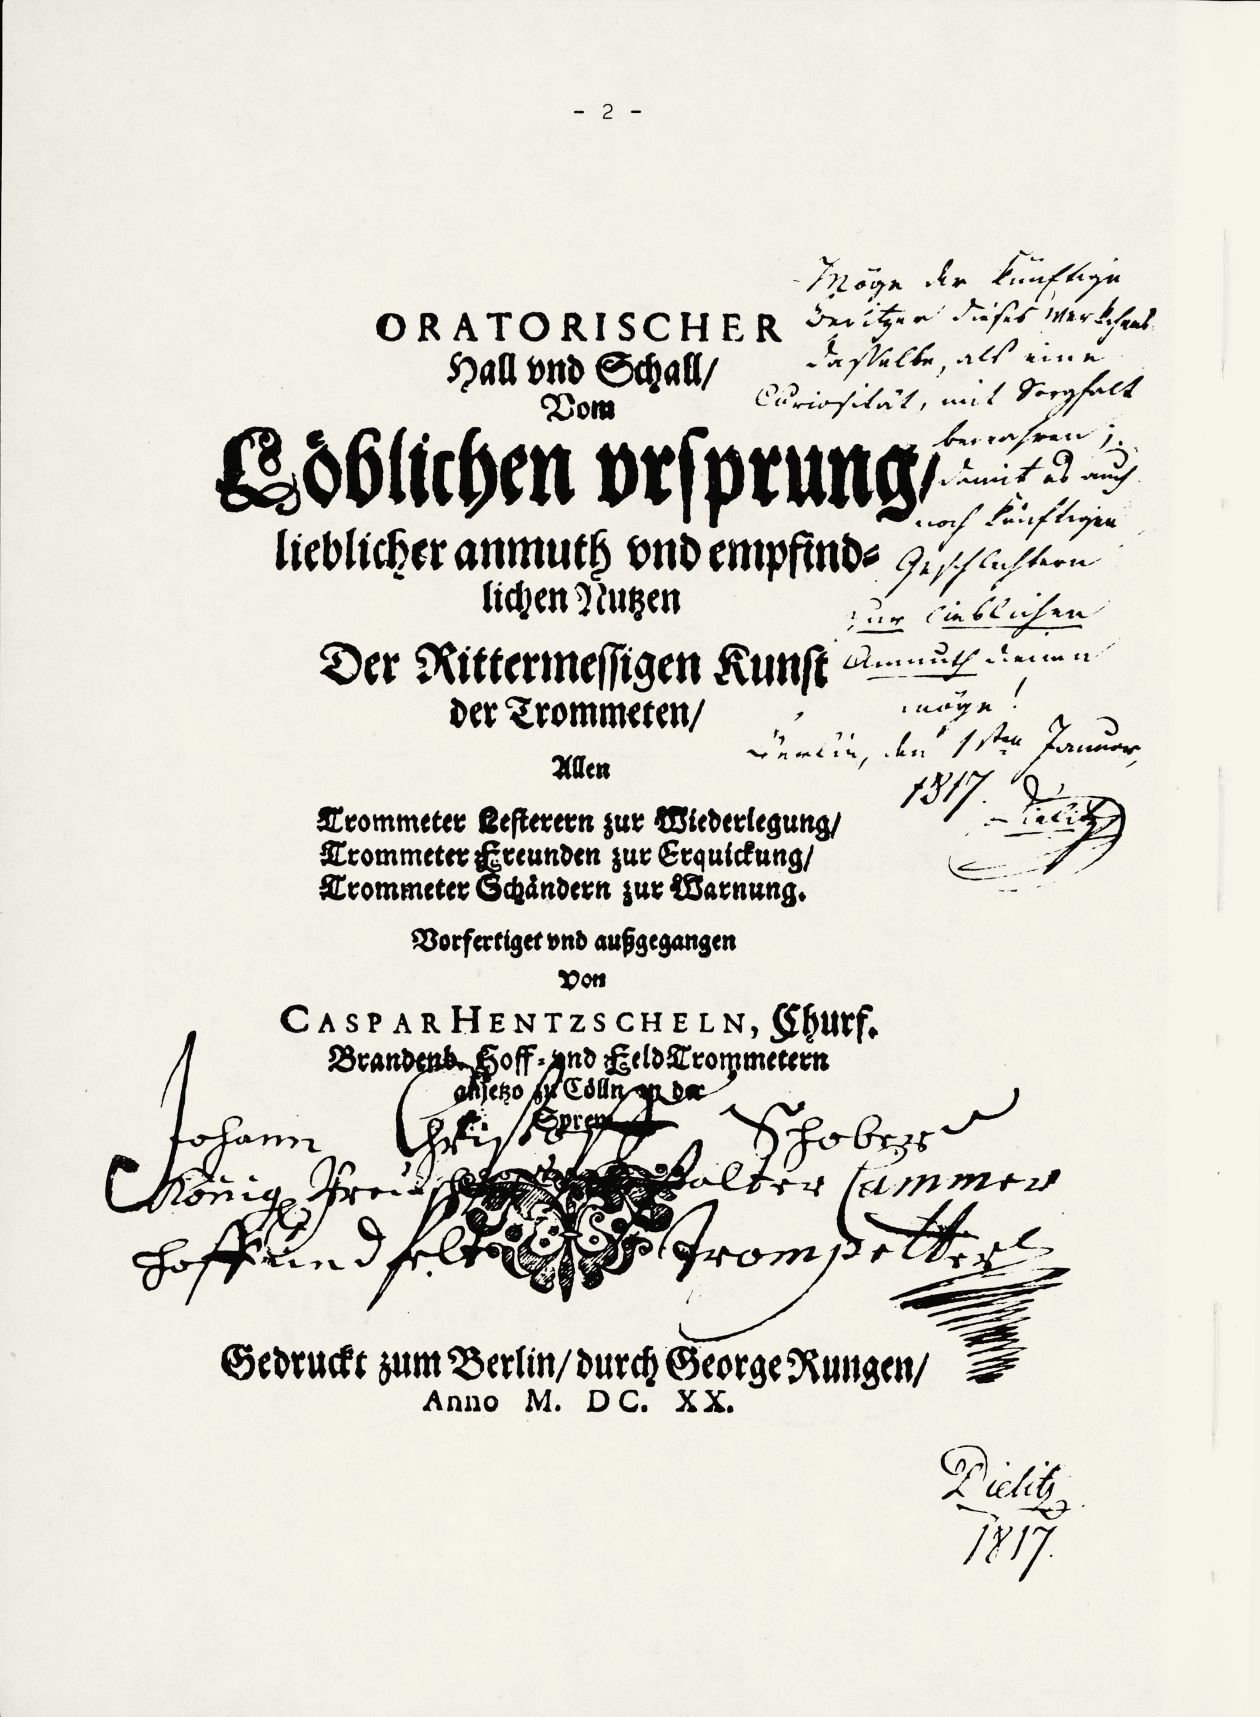 - 2 -
ORATORISCHER
Hall vnd Schall/
Vom
Löblichen vrsprung/
lieblicher anmuth vnd empfind⸗
lichen Nutzen
Der Rittermessigen Kunst
der Trommeten/
Allen
Trommeter Lesterern zur Wiederlegung/
Trommeter Freunden zur Erquickung/
Trommeter Schändern zur Warnung.
Vorfertiget vnd außgegangen
Von
CASPAR HENTZSCHELN, Churf.
Brandenb. Hoff⸗ vnd Feld Trommetern
anjetzo zu Cölln an der
Sprew
Möge der künftige
Besitzer dieses Werkchens
dasselbe, als eine
Curiosität, mit Sorgfalt
bewahren;
damit es auch
noch künftigen
Geschlechtern
zur lieblichen
Anmuth dienen
möge!
Berlin, den 1sten Januar,
1817.
Dielitz
Johann Christoff Schober
König Preus alter Cammer
hoff und felt Trompetter
Gedruckt zum Berlin/ durch George Rungen/
Anno M. DC. XX.
Dielitz
1817.